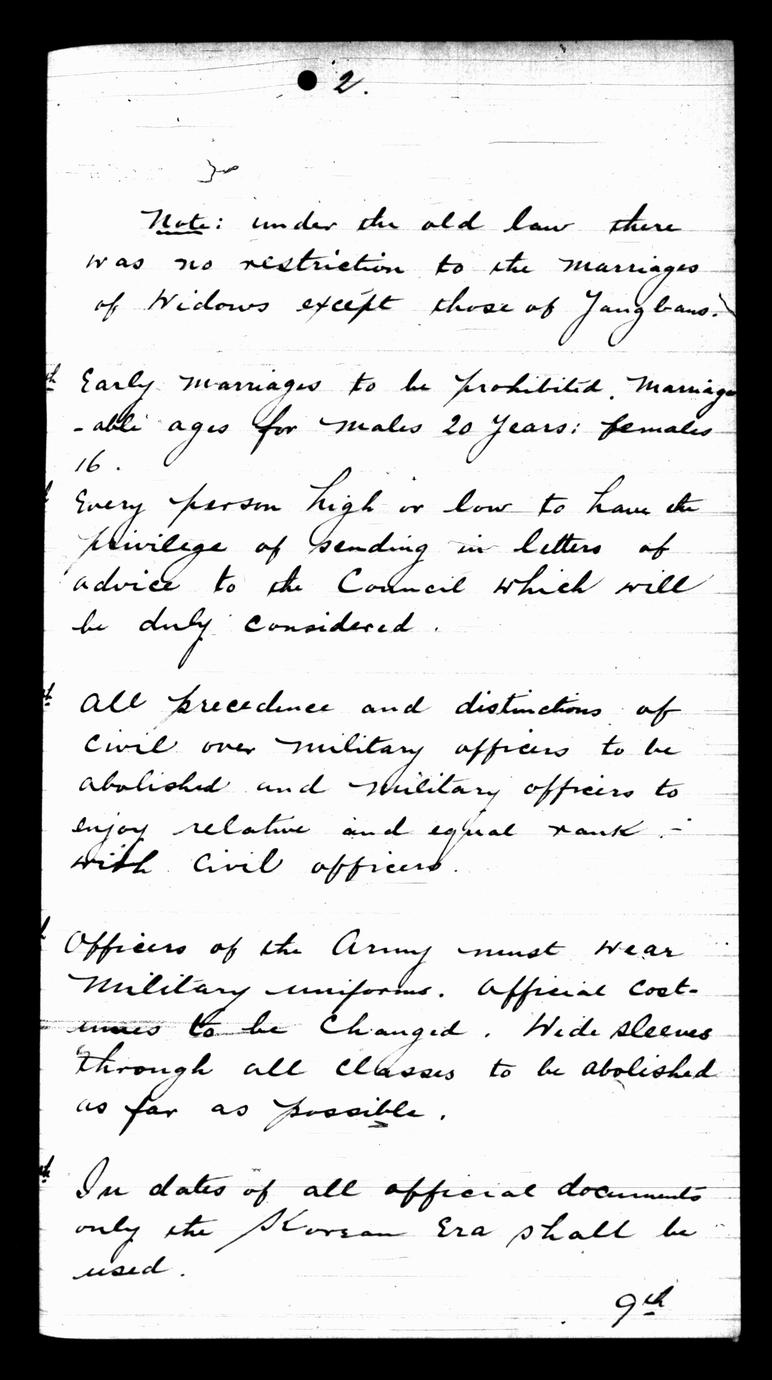 2.
Note: under the old law there
was no restriction to the Marriages
of Widows except those of Yangbans.
Early Marriages to be prohibited. Marriage
-able ages for Males 20 Years: females
16.
Every person high or low to have the
privilege of sending in letters of
advice to the Council which will
be duly Considered.
All precedence and distinctions of
Civil over Military officers to be
abolished and Military officers to
enjoy relative and equal rank -
with Civil officers.
Officers of the Army must wear
Military uniforms. Official Cost-
umes to be Changed. Wide sleeves
through all Classes to be abolished
as far as possible.
In dates of all official documents
only the Korean Era shall be
used.
9th